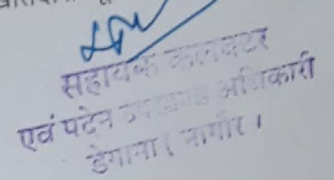 सहायक कलक्टर
एवं पदेन उपखण्ड अधिकारी
डेगाना ( नागौर ।